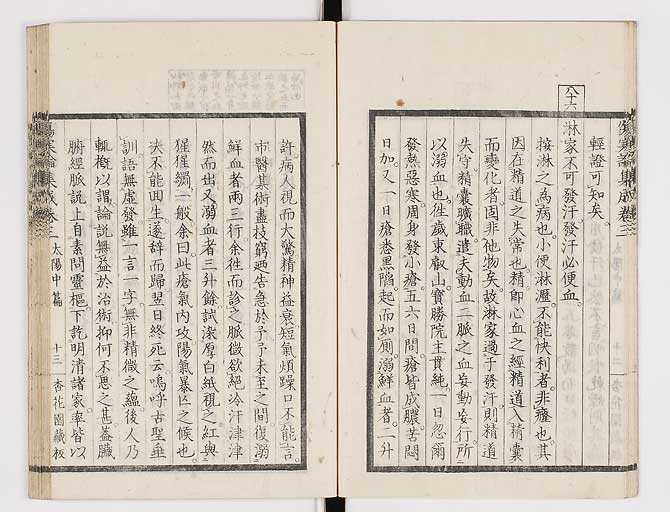 輕證可知矣。
八十六
淋家不可發汗發汗必便血。
按淋之為病也。小便淋瀝。不能快利者。非癃也。其
因在精道之失常也。精即心血之經精道。入精囊
而變化者。固非他物矣。故淋家過于發汗。則精道
失守。精囊曠職。遣夫動血二脈之血妄動妄行。所
以溺血也。往歲東叡山寶勝院主貫純。一日忽爾
發熱惡寒。周身發小瘡。五六日間。瘡皆成膿。苦悶
日加。又一日瘡悉黑陷起而如厠。溺鮮血者。一升
許。病人視而大驚。精神益衰。短氣煩躁。口不能言。
市醫某術盡技窮。遽告急於予。予未至之間。復溺
鮮血者兩三行。余往而診之。脈微欲絕。冷汗津津
然而出。又溺血者三升餘。試染厚白紙視之。紅與
猩猩縐一般。余曰。此瘡氣內攻。陽氣暴亡之候也。
決不能回生。遂辭而歸。翌日終死。云嗚呼古聖垂
訓。語無虛發。雖一言一字。無非精微之蘊。後人乃
輒槪以謂論說無益於治術。抑何不思之甚。蓋臟
腑經脈說。上自素問靈樞。下訖明清諸家。率皆以
傷寒論集成卷三 太陽中篇 十三 杏花園藏板
傷寒論集成卷三